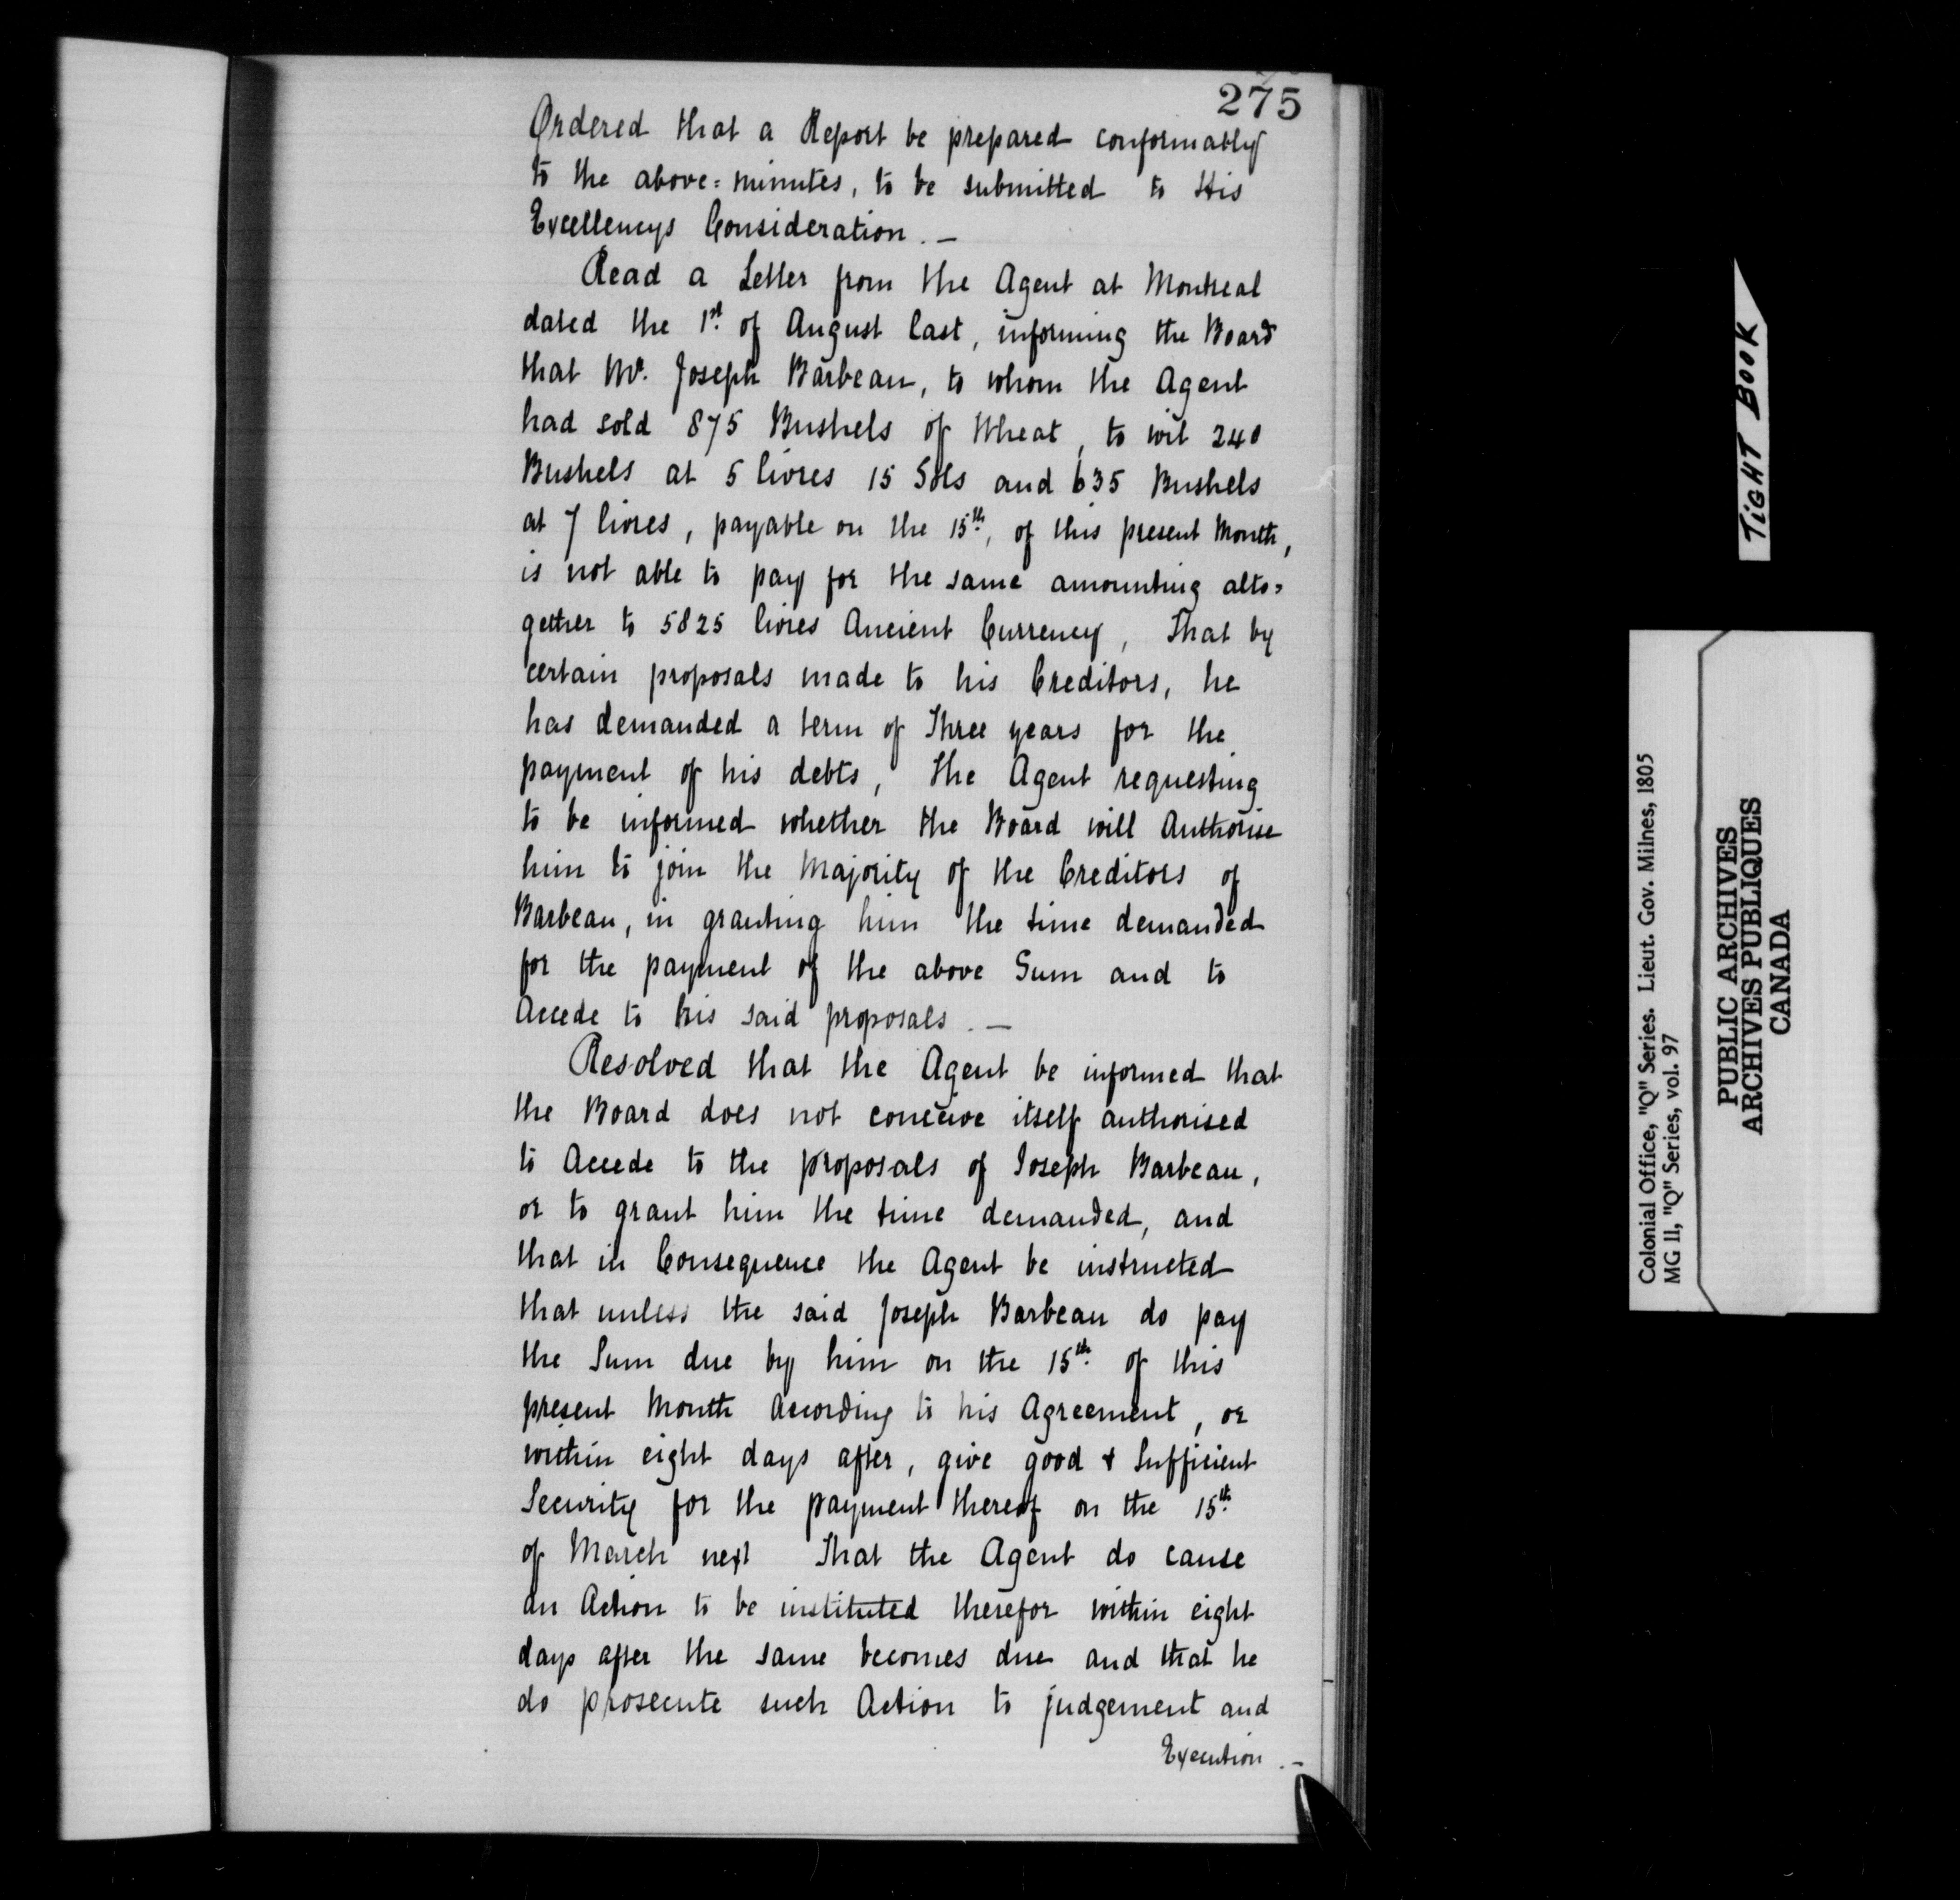 275
Ordered that a Report be prepared conformably
to the above=minutes, to be submitted to His
Excellencys Consideration. —
Read a Letter from the Agent at Montreal
dated the 1st. of August last, informing the Board
that Mr. Joseph Barbeau, to whom the Agent
had sold 875 Bushels of Wheat, to wit 240
Bushels at 5 livres 15 Sols and 635 Bushels
at 7 livres, payable on the 15th, of this present Month,
is not able to pay for the same amounting alto=
gether to 5825 livres Ancient Currency, That by
certain proposals made to his Creditors, he
has demanded a term of Three years for the
payment of his debts, the Agent requesting
to be informed whether the Board will Authorise
him to join the Majority of the Creditors of
Barbeau, in granting him the time demanded
for the payment of the above Sum and to
Accede to his said proposals. —
Resolved that the Agent be informed that
the Board does not conceive itself authorised
to Accede to the proposals of Joseph Barbeau,
or to grant him the time demanded, and
that in Consequence the Agent be instructed
that unless the said Joseph Barbeau do pay
the Sum due by him on the 15th. of this
present Month According to his Agreement, or
within eight days after, give good & Sufficient
Security for the payment thereof on the 15th.
of March next That the Agent do cause
an Action to be instituted therefor within eight
days after the same becomes due and that he
do prosecute such Action to judgement and
Execution. —
TIGHT BOOK
Colonial Office, "Q" Series. Lieut. Gov. Milnes, 1805
MG 11, "Q" Series, vol. 97
PUBLIC ARCHIVES
ARCHIVES PUBLIQUES
CANADA